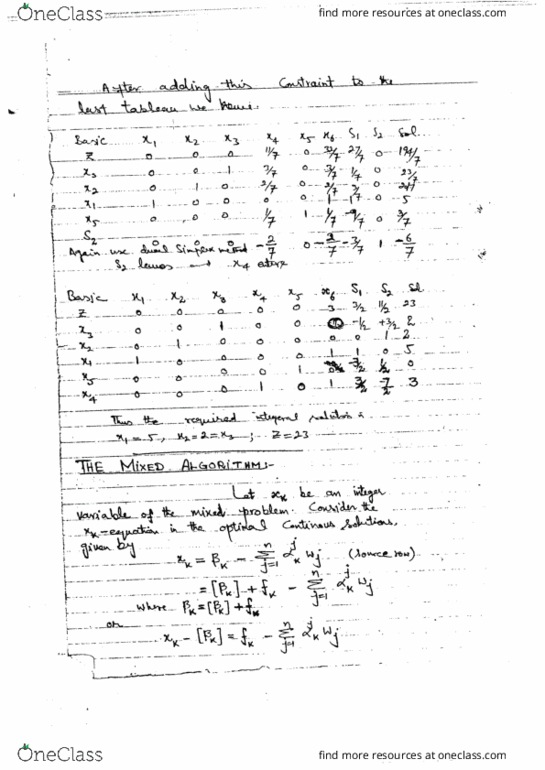 OneClass
find more resources at oneclass.com
After adding this Constraint to the
last tableau we have.
Basic x₁ x₂ x₃ x₄ x₅ x₆ S₁ S₂ Sol.
Z 0 0 0 11/7 0 32/7 27/7 0 194/7
x₃ 0 0 1 3/7 0 3/7 1/7 0 23/7
x₂ 0 1 0 2/7 0 2/7 3/7 0
x₁ 1 0 0 0 0 1 1 0 5
x₅ 0 0 0 1/7 1 1/7 0 3/7
S₂ 0 0 0 -2/7 0 -2/7 -3/7 1 -6/7
Again use dual Simplex method
S₂ leaves → x₄ enters
Basic x₁ x₂ x₃ x₄ x₅ x₆ S₁ S₂ Sol
Z 0 0 0 0 0 3 3/2 11/2 23
x₃ 0 0 1 0 0 -1/2 +3/2 2
x₂ 0 1 0 0 0 0 0 1 2
x₁ 1 0 0 0 0 1 1 0 5
x₅ 0 0 0 0 1 1/2 0
x₄ 0 0 0 1 0 1 3/2 -7/2 3
Thus the required integeral solution is
x₁ = 5, x₂ = 2 = x₃ ; Z = 23
THE MIXED ALGORITHM:-
Let xₖ be an integer
variable of the mixed problem. Consider the
xₖ-equation in the optimal Continous Solutions,
given by
xₖ = βₖ - Σⁿⱼ₌₁ αₖʲ wⱼ (source row)
= [βₖ] + fₖ - Σⁿⱼ₌₁ αₖʲ wⱼ
where βₖ = [βₖ] + fₖ
or
xₖ - [βₖ] = fₖ - Σⁿⱼ₌₁ αₖʲ wⱼ
OneClass
find more resources at oneclass.com